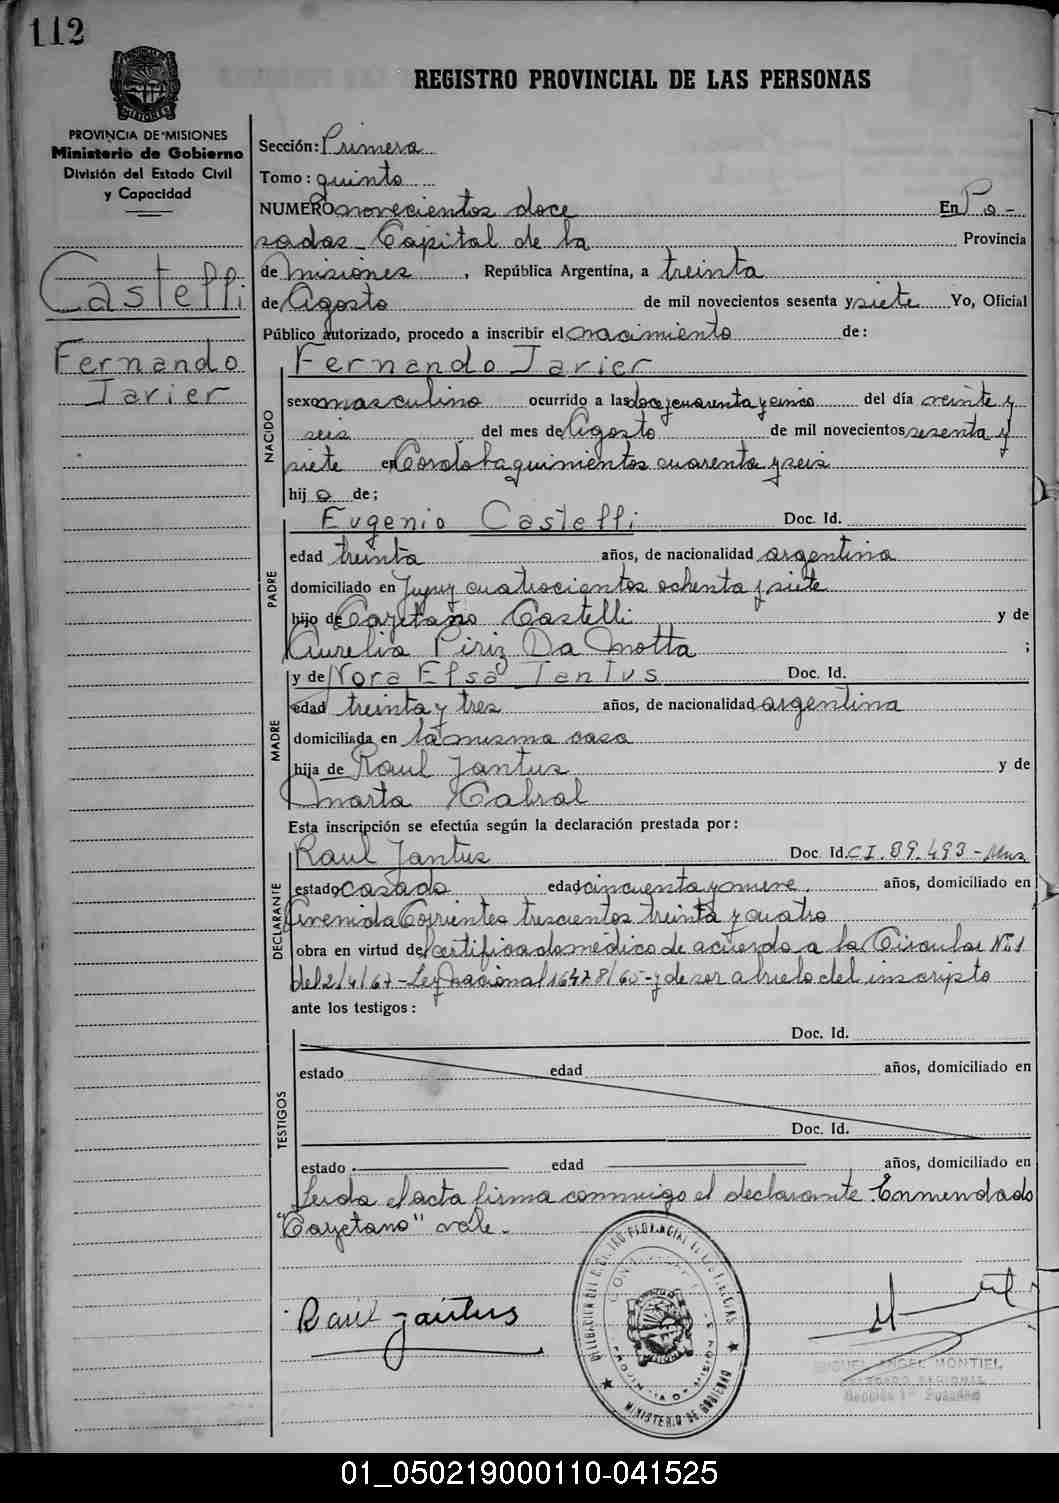 112
REGISTRO PROVINCIAL DE LAS PERSONAS
PROVINCIA DE MISIONES
Ministerio de Gobierno
División del Estado Civil
y Capacidad
Castelli
Fernando
Javier
Sección: Primera
Tomo: quinto
NUMERO novecientos doce En Po-
sadas - Capital de la Provincia
de Misiones, República Argentina, a treinta
de Agosto de mil novecientos sesenta y siete Yo, Oficial
Público autorizado, procedo a inscribir el nacimiento de:
NACIDO
Fernando Javier
sexo masculino ocurrido a las doce y cuarenta y cinco del día veinte y
seis del mes de Agosto de mil novecientos sesenta y
siete en Cordoba quinientos cuarenta y seis
hij o de;
PADRE
Eugenio Castelli Doc. Id.
edad treinta años, de nacionalidad argentina
domiciliado en Jujuy cuatrocientos ochenta y siete
hijo de Cayetano Castelli y de
Aurelia Piriz Da Motta ;
MADRE
y de Nora Elsa Jantus Doc. Id.
edad treinta y tres años, de nacionalidad argentina
domiciliada en la misma casa
hija de Raul Jantus y de
Marta Cabral
Esta inscripción se efectúa según la declaración prestada por:
DECLARANTE
Raul Jantus Doc. Id. C I. 89.493 - Mns
estado casado edad cincuenta y nueve años, domiciliado en
Avenida Corrientes trescientos treinta y cuatro
obra en virtud de certificado medico de acuerdo a la Circular Nº 1
del 2/4/67 - Ley nacional 16478/65 - y de ser abuelo del inscripto
ante los testigos:
TESTIGOS
Doc. Id.
estado edad años, domiciliado en
Doc. Id.
estado edad años, domiciliado en
Leida el acta firma conmigo el declarante. Enmendado
"Cayetano" vale.
Raúl Jantus
MINISTERIO DE GOBIERNO
PROVINCIA DE MISIONES
MIGUEL ANGEL MONTIEL
DELEGADO REGIONAL
Sección 1ª Posadas
01_050219000110-041525